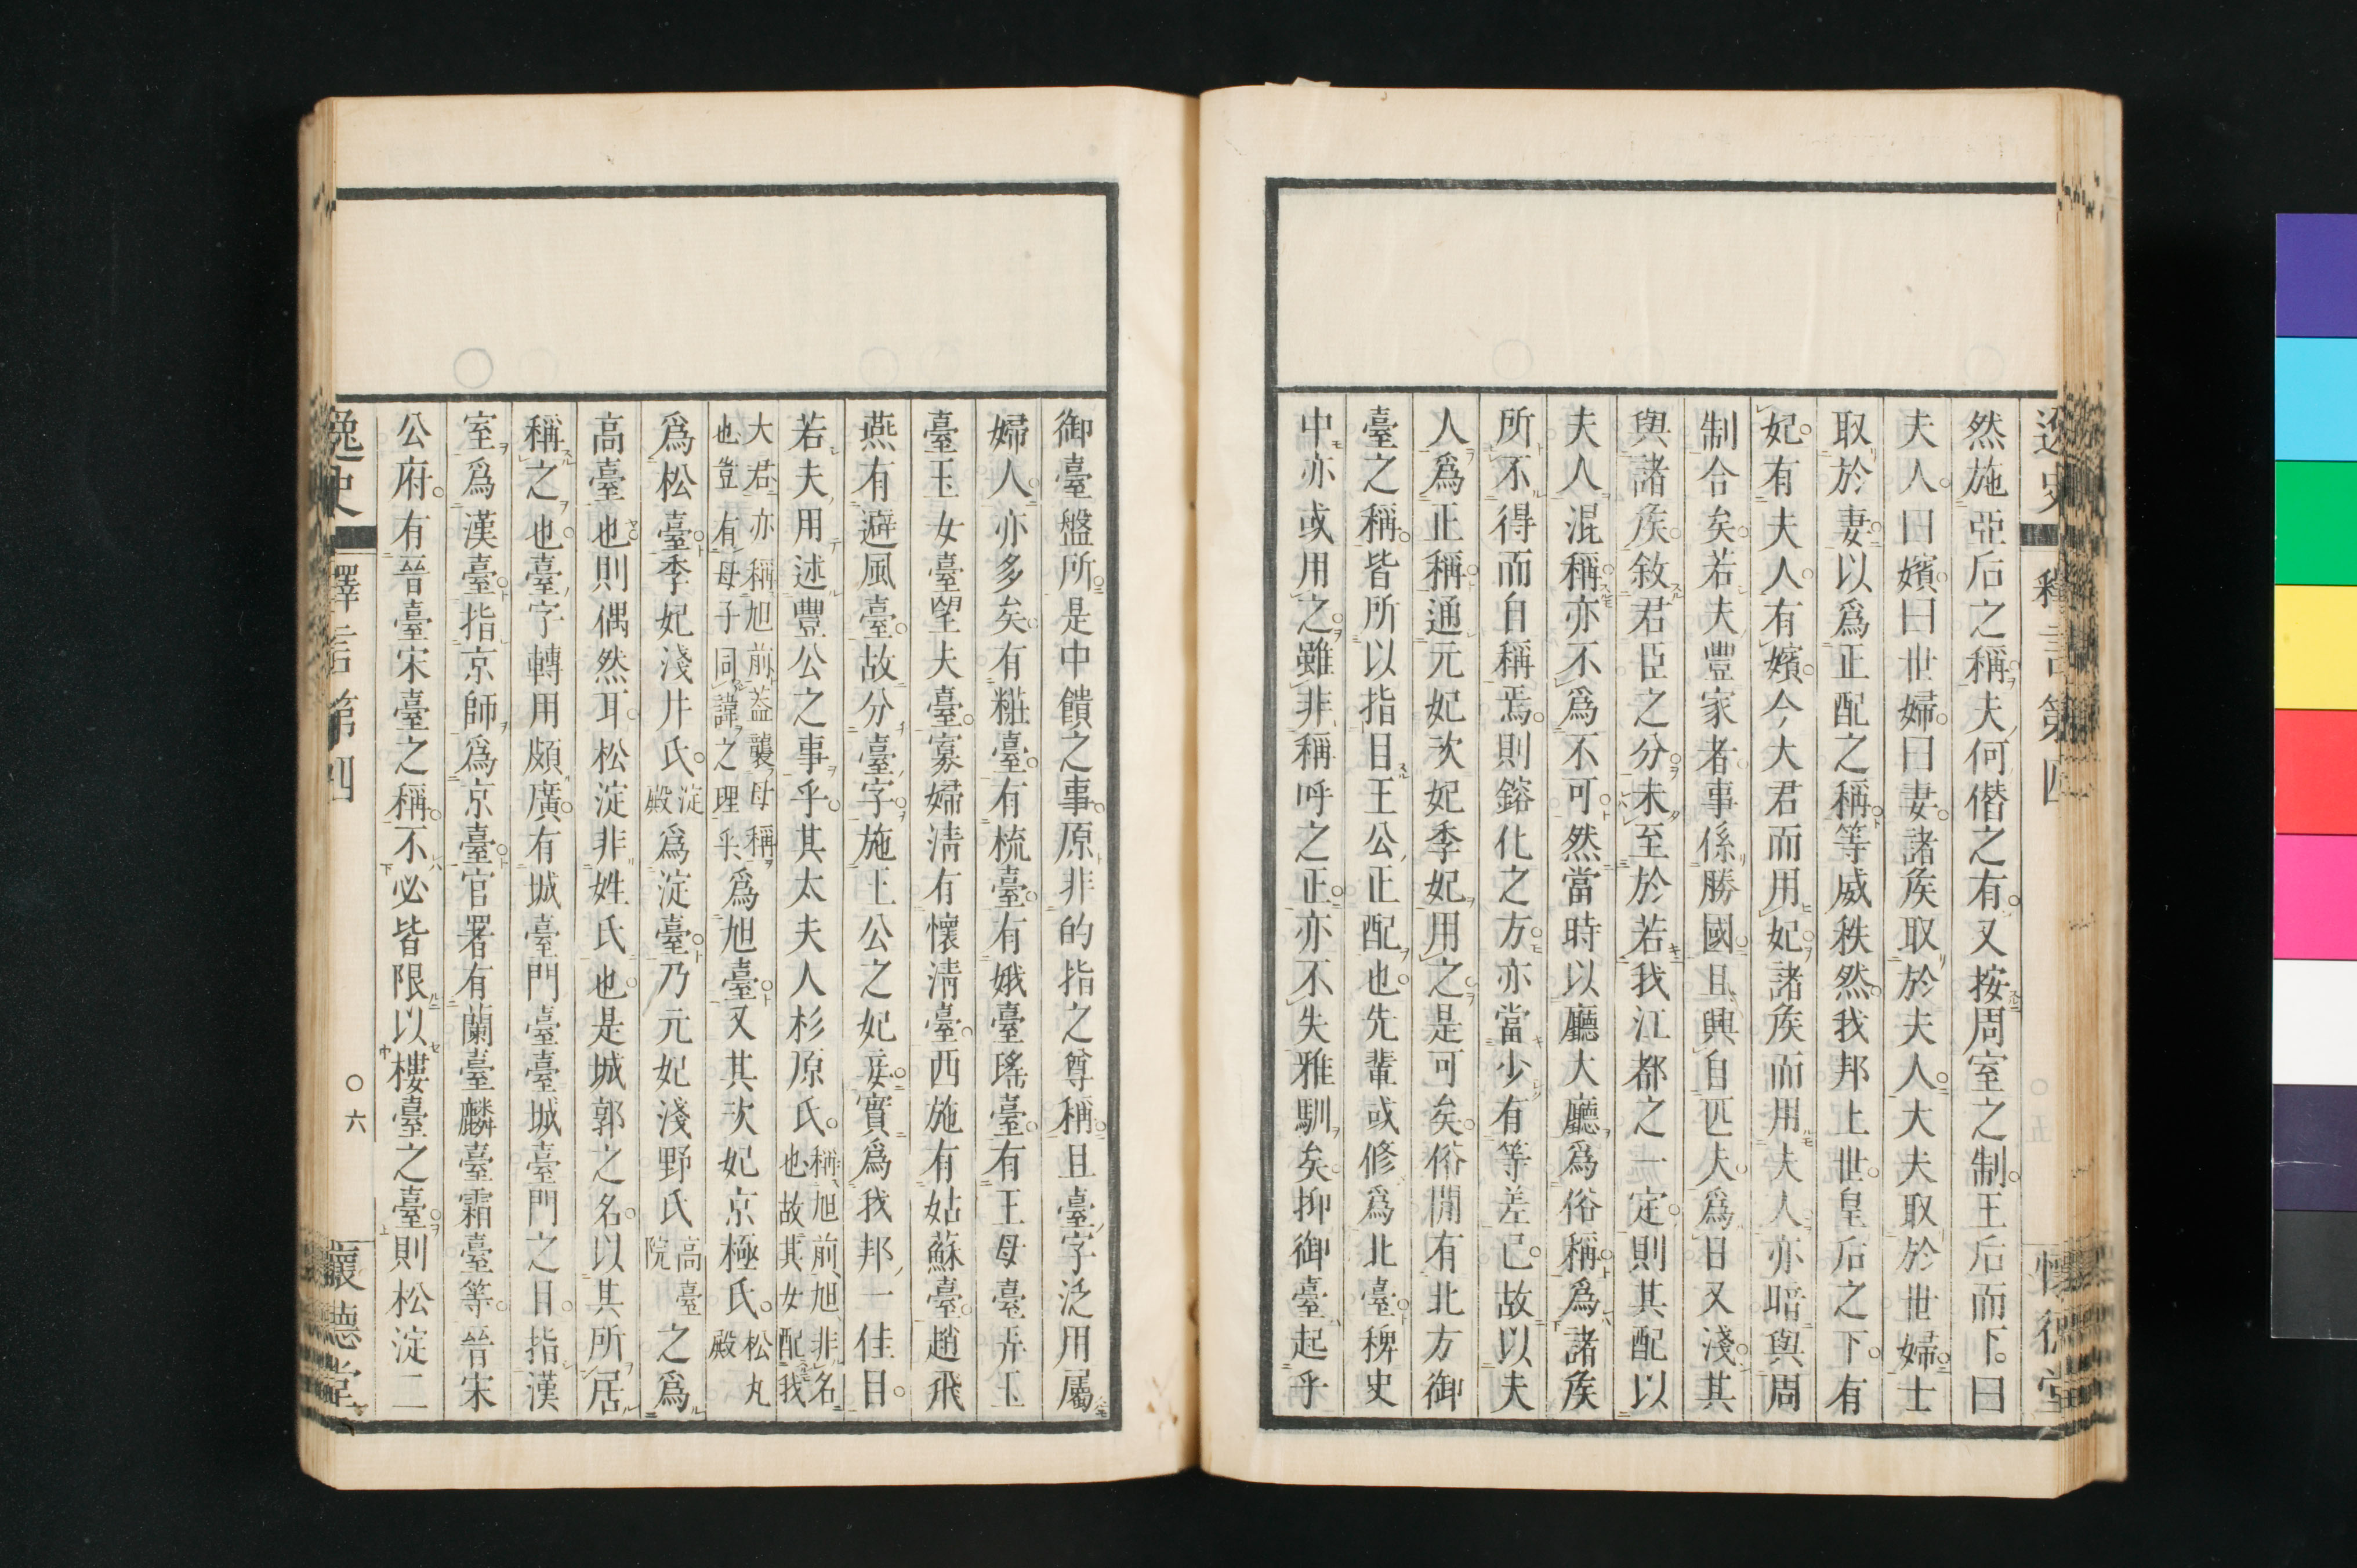 逸史
釋言第四
懷德堂
然施亞后之稱夫何僭之有又按周室之制王后而下曰
夫人曰嬪曰世婦曰妻諸矦取於夫人大夫取於世婦士
取於妻以爲正配之稱等威秩然我邦上世皇后之下有
妃有夫人有嬪今大君而用妃諸矦而用夫人亦暗與周
制合矣若夫豐家者事係勝國且興自匹夫爲日又淺其
與諸矦敘君臣之分未至於若我江都之一定則其配以
夫人混稱亦不爲不可然當時以廳大廳爲俗稱爲諸矦
所不得而自稱焉則鎔化之方亦當少有等差已故以夫
人爲正稱通元妃次妃季妃用之是可矣俗間有北方御
臺之稱皆所以指目王公正配也先輩或修爲北臺稗史
中亦或用之雖非稱呼之正亦不失雅馴矣抑御臺起乎
御臺盤所是中饋之事原非的指之尊稱且臺字泛用屬
婦人亦多矣有糚臺有梳臺有娥臺瑤臺有王母臺弄玉
臺玉女臺望夫臺寡婦淸有懷淸臺西施有姑蘇臺趙飛
燕有避風臺故分臺字施王公之妃妾實爲我邦一佳目
若夫用述豐公之事乎其太夫人杉原氏稱旭前旭非名也故其女配我
大君亦稱旭前葢襲母稱也豈有母子同諱之理乎爲旭臺又其次妃京極氏松丸殿
爲松臺季妃淺井氏淀殿爲淀臺乃元妃淺野氏高臺院之爲
高臺也則偶然耳松淀非姓氏也是城郭之名以其所居
稱之也臺字轉用頗廣有城臺門臺臺城臺門之目指漢
室爲漢臺指京師爲京臺官署有蘭臺麟臺霜臺等晉宋
公府有晉臺宋臺之稱不必皆限以樓臺之臺則松淀二
逸史
釋言第四
六
懷德堂